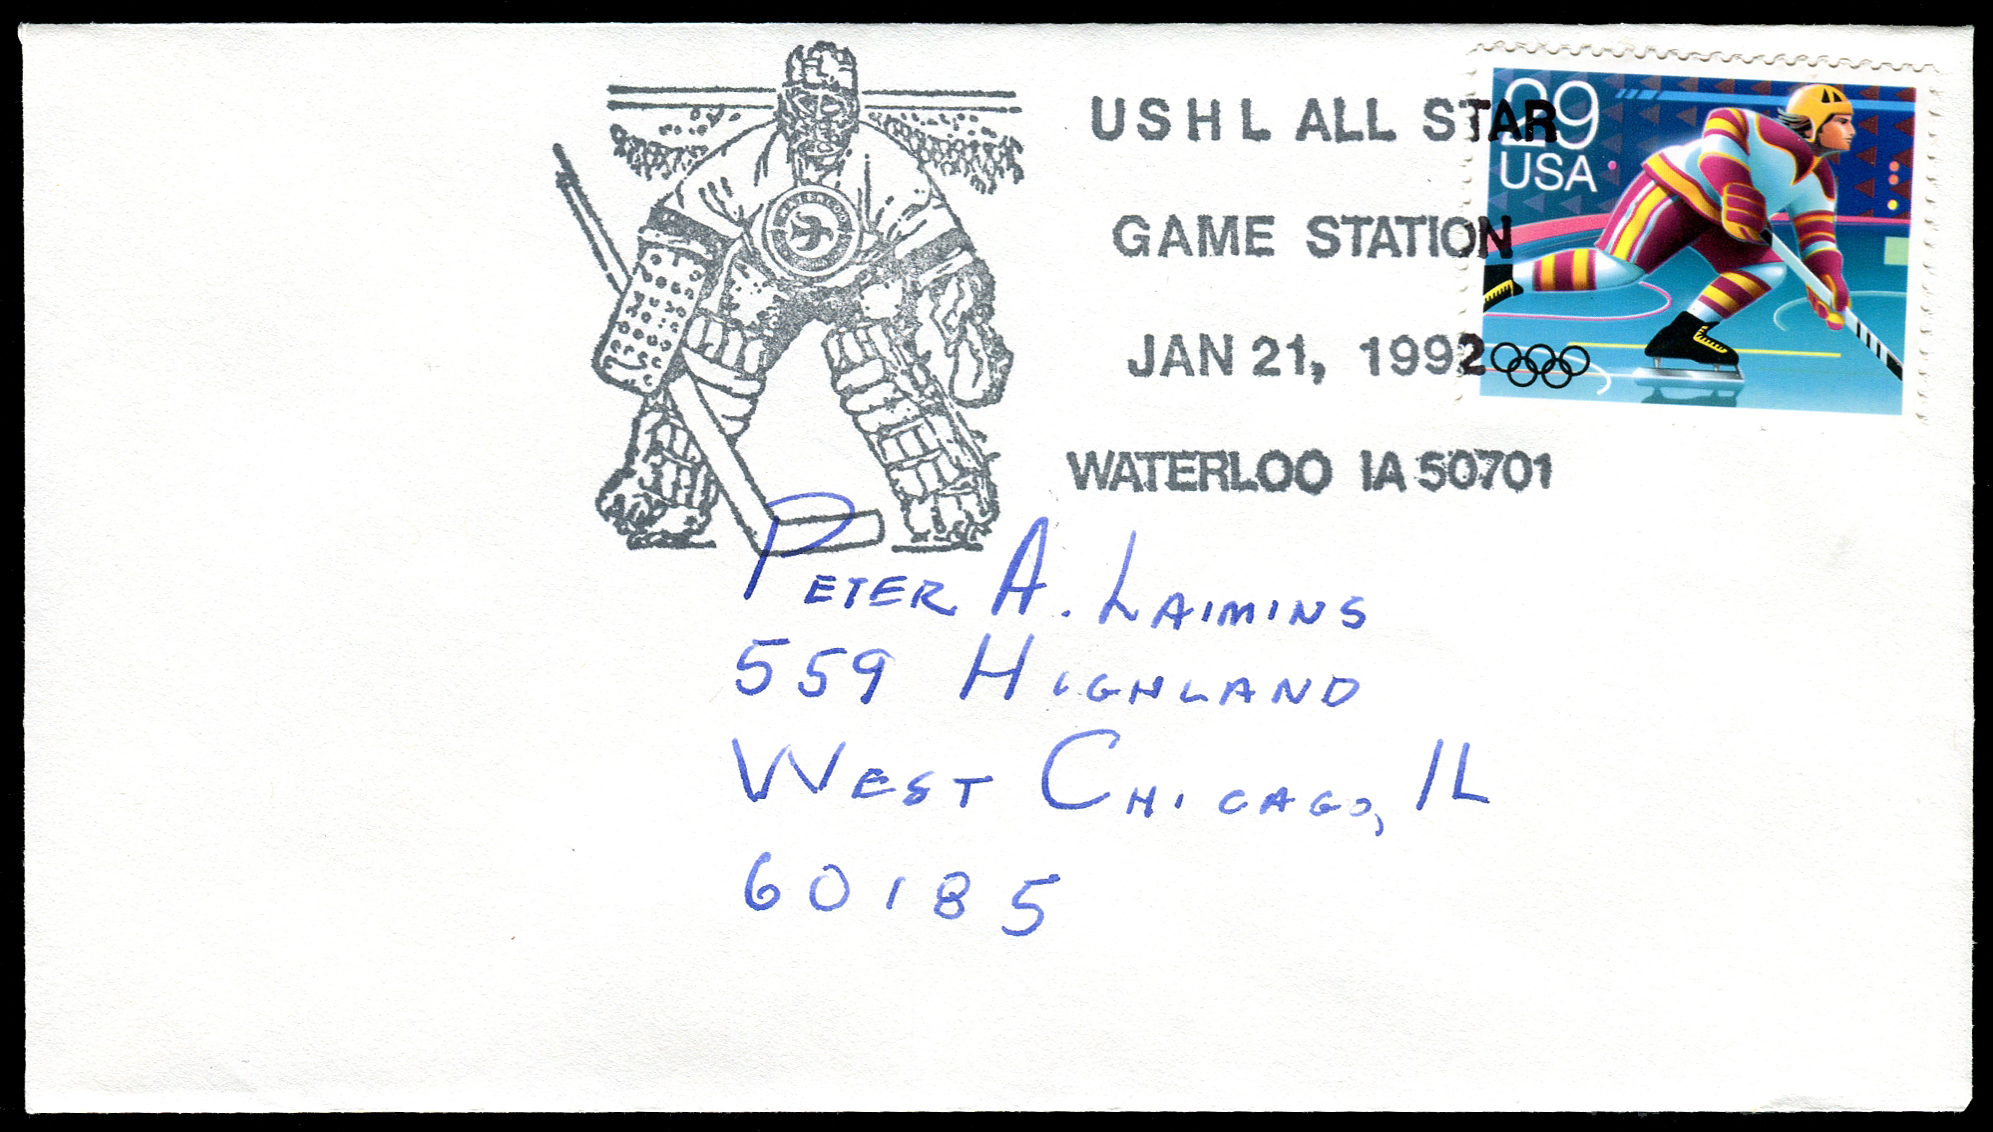 USHL ALL STAR
GAME STATION
JAN 21, 1992
WATERLOO IA 50701
29
USA
WATERLOO
PETER A. LAIMINS
559 HIGHLAND
WEST CHICAGO, IL
60185